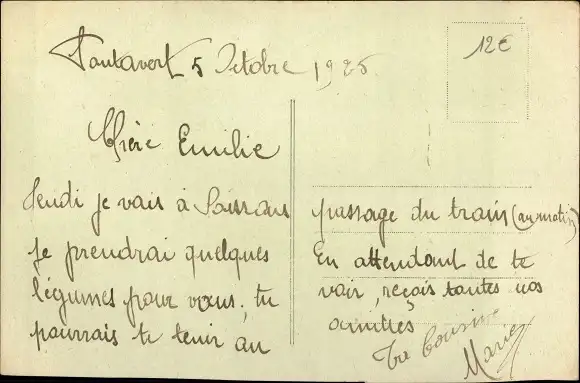 Pontavert 5 Octobre 1925
12€
Chère Emilie
Jeudi je vais à Soissons
je prendrai quelques
légumes pour vous, tu
pourrais te tenir au
passage du train (au matin)
En attendant de te
voir, reçois toutes nos
amitiés
Ta Cousine
Marie